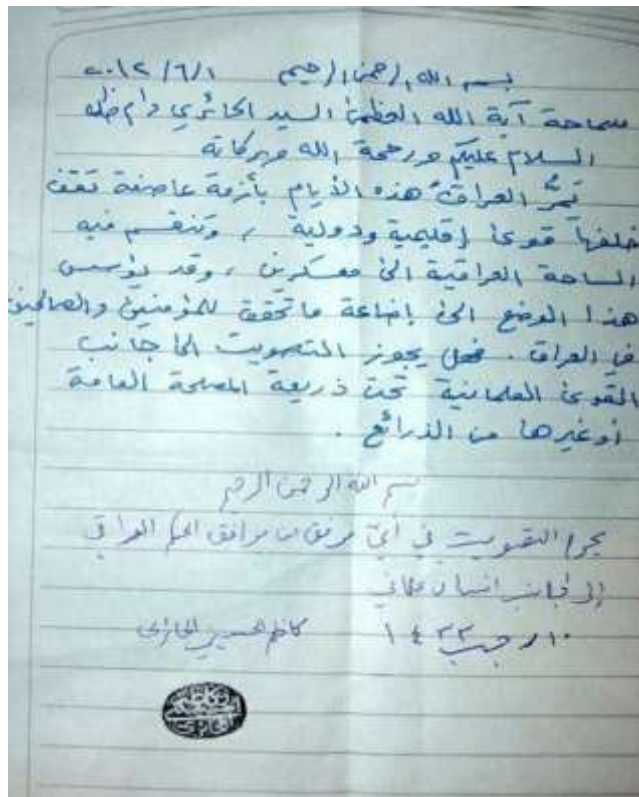 بسم الله الرحمن الرحيم ٢٠١٢/٦/١
سماحة آية الله العظمى السيد الحائري دام ظله
السلام عليكم ورحمة الله وبركاته
تمرُّ العراق هذه الأيام بأزمة عاصفة تقف
خلفها قوى إقليمية ودولية ، وتنقسم فيه
الساحة العراقية الى معسكرين ، وقد يؤسس
هذا الوضع الى إضاعة ما تحقق للمؤمنين والصالحين
في العراق . فهل يجوز التصويت الى جانب
القوى العلمانية تحت ذريعة المصلحة العامة
أو غيرها من الذرائع .
بسم الله الرحمن الرحيم
يحرم التصويت في أيّ مرفق من مرافق الحكم العراقي
إلى جانب انسان علماني
١٠ رجب ١٤٣٣ كاظم الحسيني الحائري